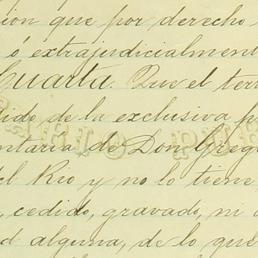 ion que por derecho
ó extrajudicialmen
Cuarta. Que el terr
dido de la exclusiva p
ntaria de Don Grego
del Rio y no lo tiene
, cedido, gravado, ni
d alguna, de lo que